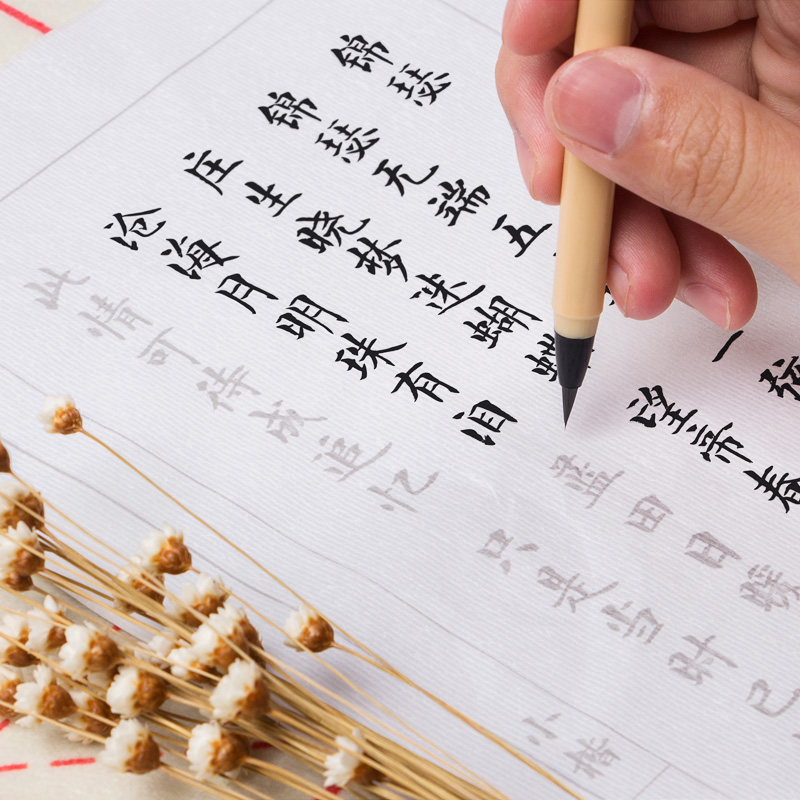 锦瑟
锦瑟无端五 一弦
庄生晓梦迷蝴蝶 望帝春
沧海月明珠有泪 蓝田日暖
此情可待成追忆 只是当时已
小楷